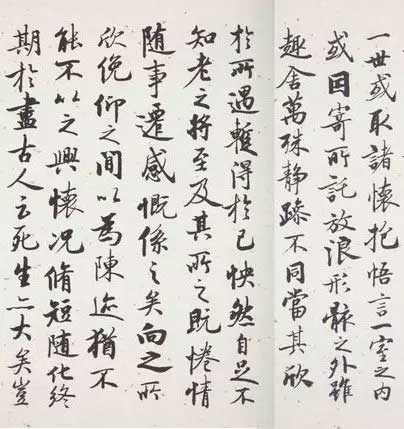 一世或取諸懷抱悟言一室之内
或因寄所託放浪形骸之外雖
趣舍萬殊静躁不同當其欣
於所遇蹔得於己怏然自足不
知老之將至及其所之既惓情
随事遷感慨係之矣向之所
欣俛仰之間以爲陳迹猶不
能不以之興懷况脩短随化終
期於盡古人云死生亦大矣豈